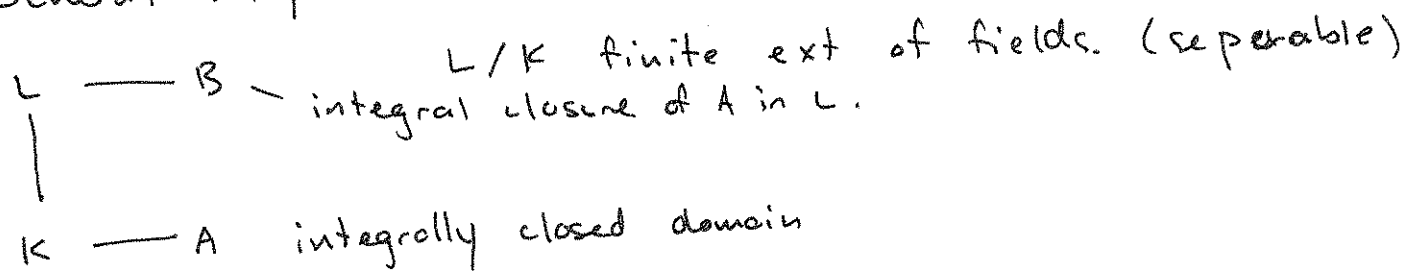 L / K finite ext of fields. (seperable)
L — B - integral closure of A in L.
K — A integrally closed domain